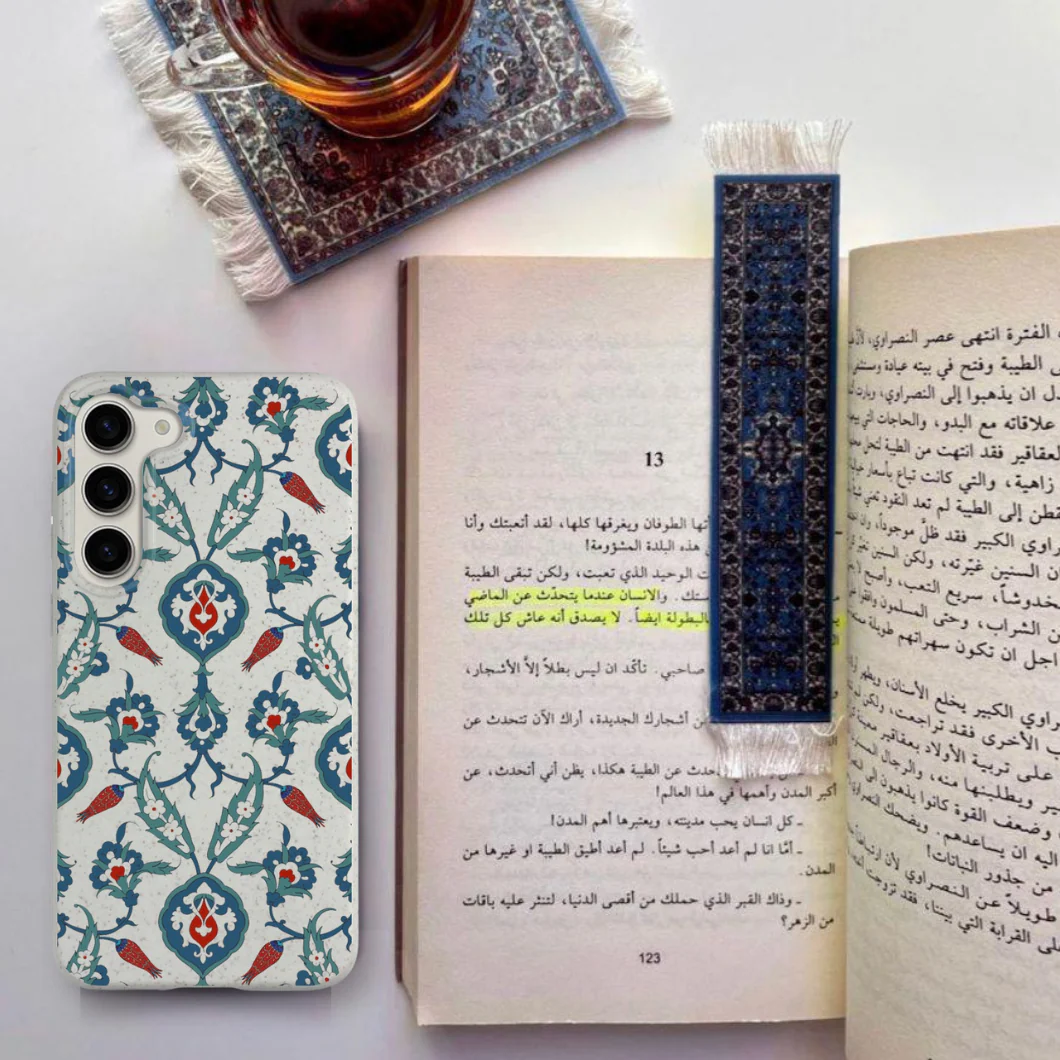 13
أتها الطوفان ويغرقها كلها، لقد أتعبتك وأنا
هذه البلدة المشؤومة!
ت الوحيد الذي تعبت، ولكن تبقى الطيبة
ستك. والانسان عندما يتحدّث عن الماضي
البطولة ايضاً. لا يصدق أنه عاش كل تلك
صاحبي. تأكّد ان ليس بطلاً إلاَّ الأشجار،
ن أشجارك الجديدة، أراك الآن تتحدث عن
حدث عن الطيبة هكذا، يظن أني أتحدث، عن
أكبر المدن وأهمها في هذا العالم!
ـ كل انسان يحب مدينته، ويعتبرها أهم المدن!
ـ أمّا انا لم أعد أحب شيئاً. لم أعد أطيق الطيبة او غيرها من
المدن.
ـ وذاك القبر الذي حملك من أقصى الدنيا، لتنثر عليه باقات
من الزهر؟
123
الفترة انتهى عصر النصراوي،
الطيبة وفتح في بيته عيادة
ان يذهبوا إلى النصراوي،
علاقاته مع البدو، والحاجات التي
فقد انتهت من الطيبة
زاهية، والتي كانت تباع بأسعار
إلى الطيبة لم تعد النقود تعني
الكبير فقد ظلّ موجوداً،
السنين غيّرته، ولكن السنين
سريع التعب، وأصبح
الشراب، وحتى المسلمون
اجل ان تكون سهراتهم طويلة
الكبير يخلع الأسنان، ويظهر
الأخرى فقد تراجعت، ولكن
على تربية الأولاد بعقاقير معينة
ويطلبنها منه، والرجال
وضعف القوة كانوا يذهبون الى
اليه ان يساعدهم. ويضحك النصراوي
من جذور النباتات!
طويلاً عن النصراوي لأن
القرابة التي بيننا، فقد تزوجت